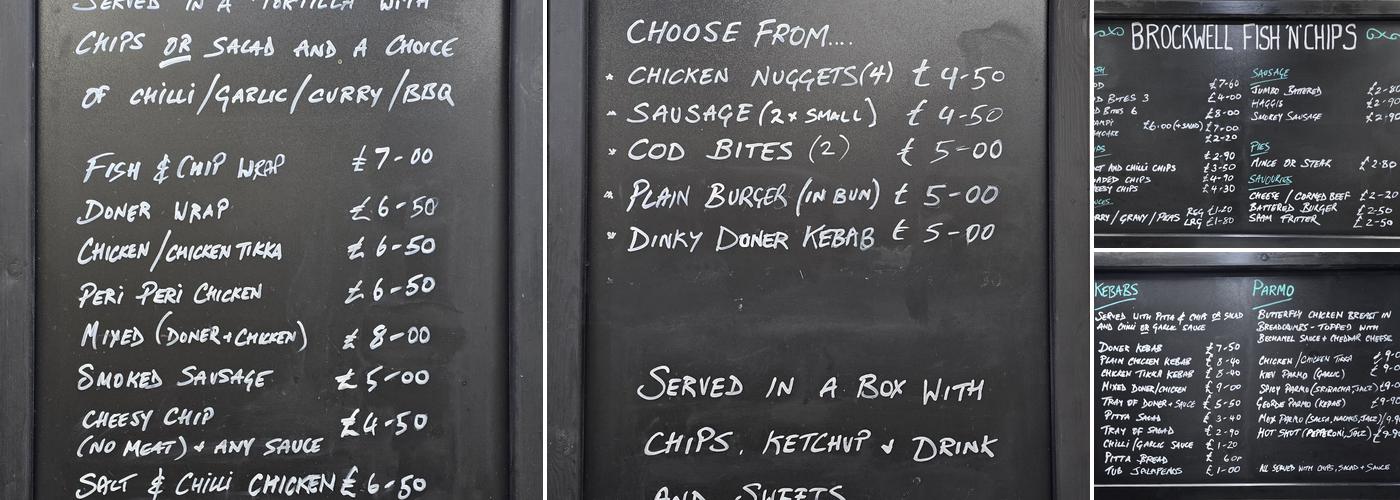 SERVED IN A TORTILLA WITH
CHIPS OR SALAD AND A CHOICE
OF CHILLI/GARLIC/CURRY/BBQ
FISH & CHIP WRAP £7-00
DONER WRAP £6-50
CHICKEN/CHICKEN TIKKA £6-50
PERI PERI CHICKEN £6-50
MIXED (DONER+CHICKEN) £8-00
SMOKED SAUSAGE £5-00
CHEESY CHIP £4-50
(NO MEAT) + ANY SAUCE
SALT & CHILLI CHICKEN £6-50
CHOOSE FROM....
* CHICKEN NUGGETS(4) £4-50
* SAUSAGE (2x SMALL) £4-50
* COD BITES (2) £5-00
* PLAIN BURGER (IN BUN) £5-00
* DINKY DONER KEBAB £5-00
SERVED IN A BOX WITH
CHIPS, KETCHUP & DRINK
AND SWEETS
BROCKWELL FISH 'N' CHIPS
£7-60
D BITES 3 £4-00
D BITES 6 £8-00
£6.00 (+SALAD) £7-00
£2-20
£2-90
AND CHILLI CHIPS £3-50
CHIPS £4-90
CHIPS £4-30
/GRAVY/PEAS REG £1-20
LRG £1-80
SAUSAGE
JUMBO BATTERED £2-80
HAGGIS £2-90
SMOKEY SAUSAGE £2-90
PIES
MINCE OR STEAK £2-80
SAVOURIES
CHEESE/CORNED BEEF £2-20
BATTERED BURGER £2-50
SPAM FRITTER £2-50
KEBABS
SERVED WITH PITTA & CHIPS OR SALAD
AND CHILLI OR GARLIC SAUCE
DONER KEBAB £7-50
PLAIN CHICKEN KEBAB £8-40
CHICKEN TIKKA KEBAB £8-40
MIXED DONER/CHICKEN £9-00
TRAY OF DONER+SAUCE £5-50
PITTA SALAD £3-40
TRAY OF SALAD £2-90
CHILLI/GARLIC SAUCE £1-20
PITTA BREAD £ 60P
TUB JALAPENOS £1-00
PARMO
BUTTERFLY CHICKEN BREAST IN
BREADCRUMBS - TOPPED WITH
BECHAMEL SAUCE + CHEDDAR CHEESE
CHICKEN/CHICKEN TIKKA
KIEV PARMO (GARLIC)
SPICY PARMO (SRIRACHA, JALZ)
GEORDIE PARMO (KEBAB)
MEX PARMO (SALSA, NACHOS, JALZ)
HOT SHOT (PEPPERONI, JALZ)
ALL SERVED WITH CHIPS, SALAD + SAUCE